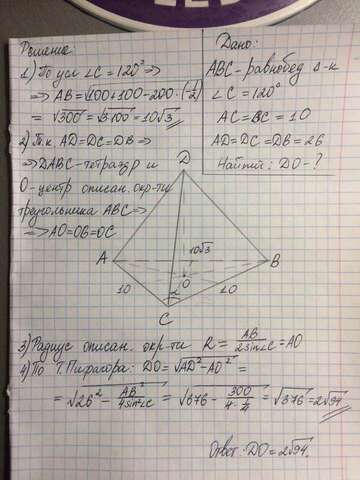 Решение:
1) По усл ∠C = 120° ⇒
⇒ AB = √100+100-200·(-1/2)
= √300 = √3·100 = 10√3
2) Т.к AD=DC=DB ⇒
⇒ DABC-тетраэдр и
O-центр описан. окр-ти
треугольника ABC ⇒
⇒ AO=OB=OC
Дано:
ABC-равнобед Δ-к
∠C = 120°
AC = BC = 10
AD=DC=DB=26
Найти: DO-?
D
A
B
10√3
O
10
10
C
3) Радиус описан. окр-ти R = AB/2sin∠C = AO
4) По Т. Пифагора: DO = √AD²-AO² =
= √26² - AB²/4sin²∠C = √676 - 300/4·3/4 = √376 = 2√94
Ответ: DO = 2√94.